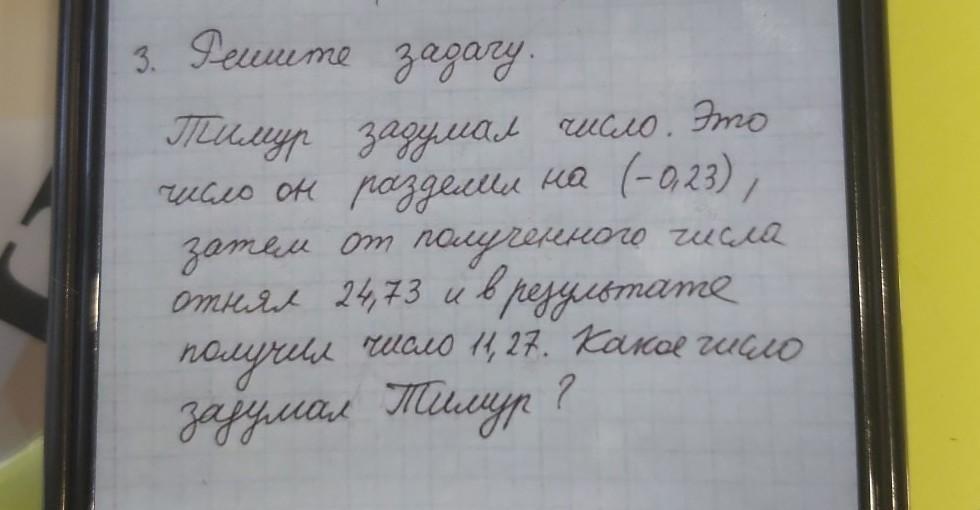 3. Решите задачу.
Тимур задумал число. Это
число он разделил на (-0,23),
затем от полученного числа
отнял 24,73 и в результате
получил число 11,27. Какое число
задумал Тимур?